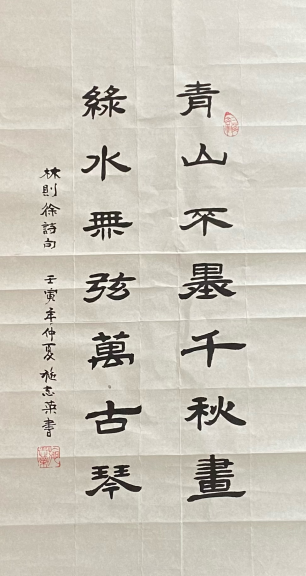 青山不墨千秋畫
綠水無弦萬古琴
林則徐詩句 壬寅年仲夏 施志英書